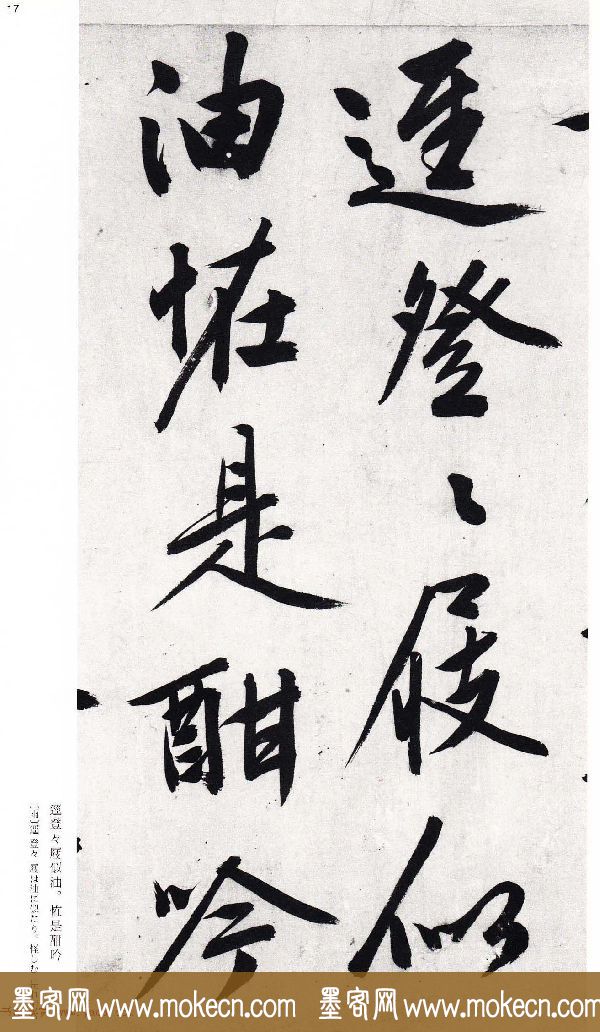 17
逕登々屐似
油恠是酣吟
逕登々屐似油。恠是酣吟
墨客网 www.mokecn.com 墨客网 www.mokecn.com